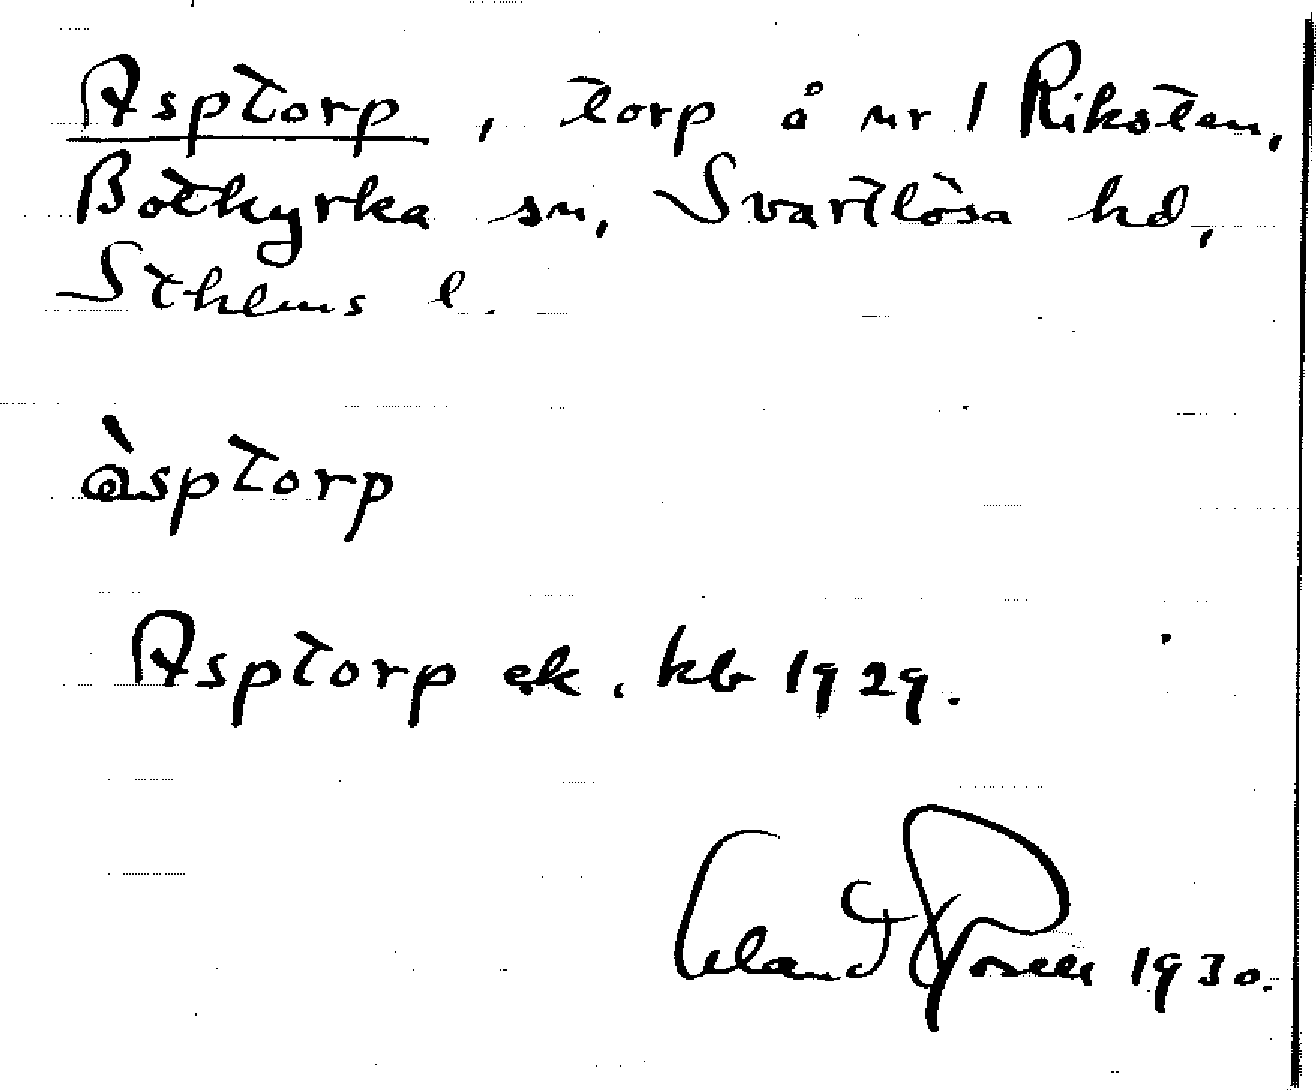 Asptorp, torp å nr 1 Riksten,
Botkyrka sn, Svartlösa hd,
Sthlms l.
àsptorp
Asptorp ek. kb 1929.
1930.